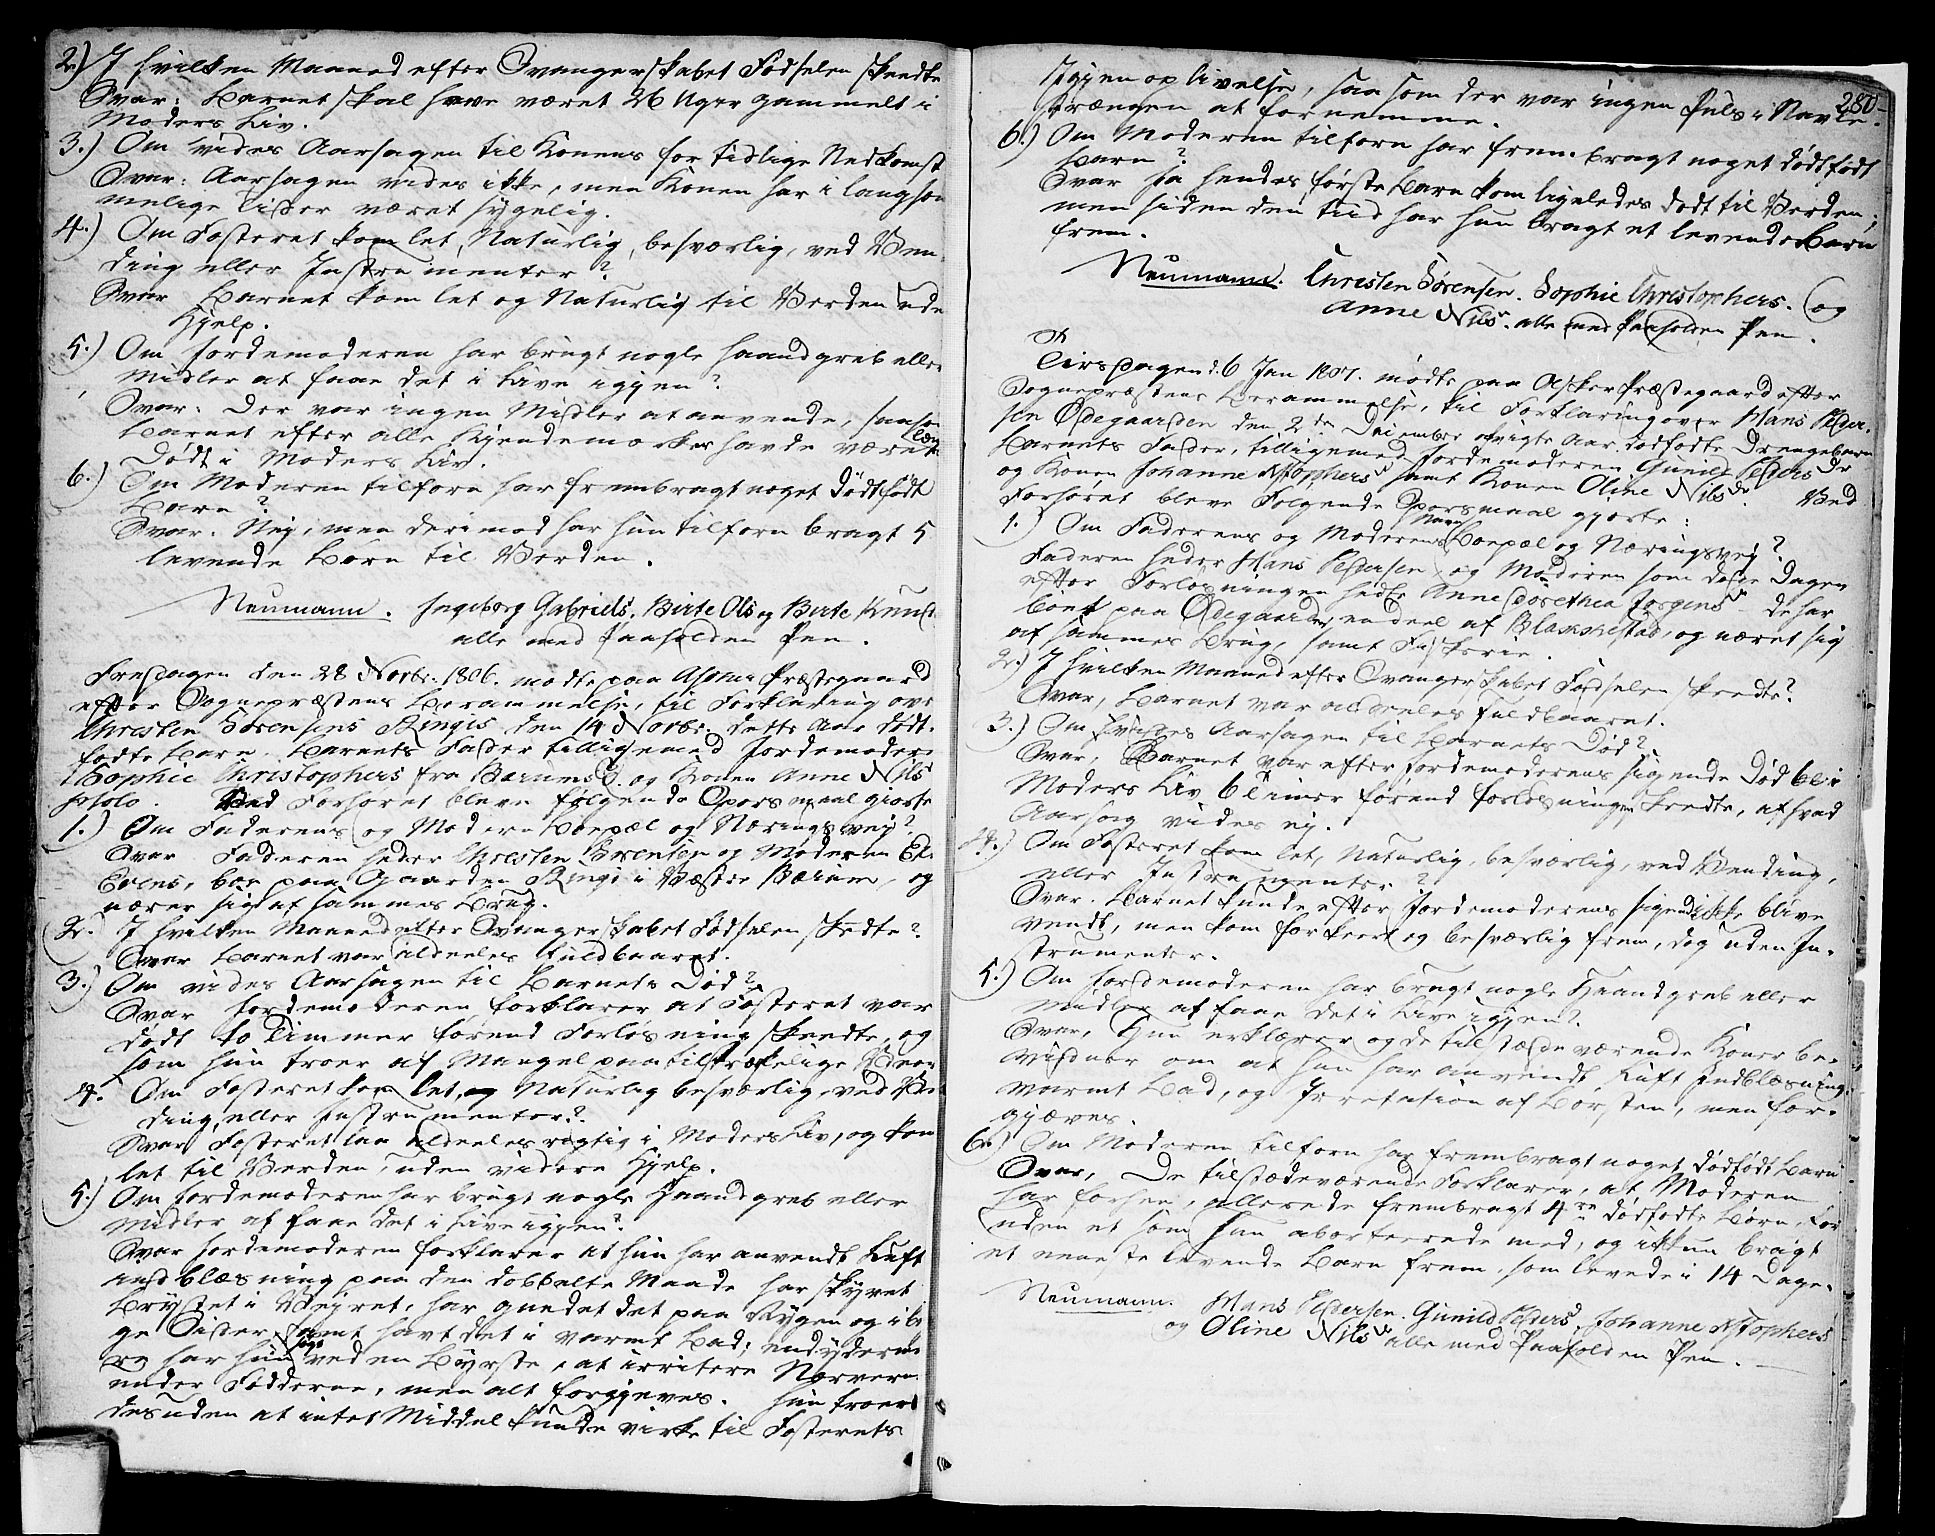 2.) I hvilken Maaned efter Svangerskabet Fødselen skeedte
Svar: Barnet skal have været 26 Uger gammelt i
Moders Liv.
3.) Om vides Aarsagen til Konens for tidlige Nedkomst
Svar: Aarsagen vides ikke, men Konen har i langsom
melige Tider været sygelig.
4.) Om Fosteret kom let, Naturlig, besværlig, ved Ven-
ding eller Instrumenter?
Svar Barnet kom let og Naturlig til Verden uden
Hjelp.
5.) Om Jordemoderen har brugt nogle Haandgreb eller
Midler at faae det i Live igjen?
Svar: Der var ingen Midler at anvende, saasom
Barnet efter alle Kjendemærker havde været læng
Dødt i Moders Liv.
6.) Om Moderen tilforn har frembragt noget Dødtfødt
Barn?
Svar: Nej, men derimod har hun tilforn bragt 5
levende Børn til Verden.
Neumann. Ingeborg Gabriels, Birte Ols og Birte Knuds
alle med Paaholden Pen.
Fredagen den 28 Novbr. 1806. mødte paa Asker Præstegaard
efter Sognepræstens Berammelse, til Forklaring over
Christen Sørensens Ringis den 14 Novbr. dette Aar død-
fødte Barn. Barnets Fader tilligemed Jordemoderen
Sophie Christophers fra Bærums og Konen Anne Nils
. Ved Forhøret bleve følgende Spørsmaal giorte
1.) Om Faderens og Moderens Boepæl og Næringsvej?
Svar Faderen heder Christen Sørensen og Moderen El.
Evens, boe paa Gaarden Ringi i Vestre Bærum, og
nærer sig af sammes Brug.
2.) I hvilken Maaned efter Svangerskabet Fødselen skedte?
Svar Barnet var aldeeles Fuldbaaret.
3.) Om vides Aarsagen til Barnets Død?
Svar Jordemoderen forklarer at Fosteret var
dødt to Timmer førend Forløsning skeedte, og
som hun troer af Mangel paa tilstrækelige Veer
4. Om Fosteret kom let, og Naturlig besværlig, ved Ven-
ding, eller Instrumenter?
Svar Fosteret laa aldeeles rigtig i Moders Liv, og kom
let til Verden, uden videre Hjelp.
5.) Om Jordemoderen har brugt nogle Haandgreb eller
Midler at faae det i Live igjen?
Svar Jordemoderen forklarer at hun har anvendt Luft
indblæsning paa den dobbelte Maade har skyret
Brystet i Vejret, har gnedet det paa Rygen og i be
ge Sider samt havt det i varmt Bad; end yderme
re har hun søgt ved en Byrste, at irritere Nerverne
under Fødderne, men alt forgjeves. Hun troer
desuden at intet Middel kunde virke til Fosterets
280
igjen oplivelse, saasom der var ingen Puls i Navle-
strængen at fornemme.
6.) Om Moderen tilforn har frembragt noget dødtfødt
Barn?
Svar Ja hendes første Barn kom ligeledes dødt til Verden;
men siden den Tiid har hun bragt et levende Barn
frem.
Neumann. Christen Sørensen. Sophie Christophers. og
Anne Nilsd. alle med Paaholden Pen.
Tirsdagen d. 6 Jan 1807. mødte paa Asker Præstegaard efter
Sognepræstens Berammelse, til Forklaring over Hans Peder-
sen Ødegaarden den 2den December afvigte Aar dødfødte Drengebarn
Barnets Fader, tilligemed Jordemoderen Gunild Peders Dr
og Konen Johanne Xstophersd samt Konen Oline Nilsdr. Ved
Forhøret bleve Følgende Spørsmaal gjorte:
1.) Om Faderens og Moderens Navn Boepæl og Næringsvej?
Faderen heder Hans Pedersen og Moderen som døde Dagen
efter Forløsningen hedte Anne Dorethea Jørgensd. De har
boet paa Ødegaarden, en deel af Blakkestad, og næret sig
af sammes Brug, samt Fiskerie.
2.) I hvilken Maaned efter Svangerskabet Fødselen skedte?
Svar, Barnet var aldeeles Fuldbaaret.
3.) Om vides Aarsagen til Barnets Død?
Svar, Barnet var efter Jordemoderens sigende Død bl i
Moders Liv 6 Timer førend Forløsningen skedte, af hvad
Aarsag vides ej.
4.) Om Fosteret kom let, Naturlig, besværlig, ved Vending,
eller Instrumenter?
Svar. Barnet kunde efter Jordemoderens sigende ikke blive
vendt, men kom forkeert og besværlig frem, dog uden In-
strumenter.
5.) Om Jordemoderen har brugt nogle Haandgreb eller
Midler at faae det i Live igjen?
Svar, Hun erklærer og de tilstædeværende Koner be-
vidner om at hun har anvendt Luft Indblæsning,
varmt Bad, og Irretation af Børsten, men for-
gjæves.
6.) Om Moderen tilforn har frembragt noget dødfødt Barn
Svar, De tilstædeværende Forklarer, at Moderen
har forhen, allerede frembragt 4re dødfødte Børn, for
uden et som hun aborterede med, og ikkun bragt
et eneste levende Barn frem, som levede i 14 Dage.
Neumann. Hans Pedersen. Gunild Pedersd, Johanne Xstophers
og Oline Nilsd alle med Paaholden Pen.